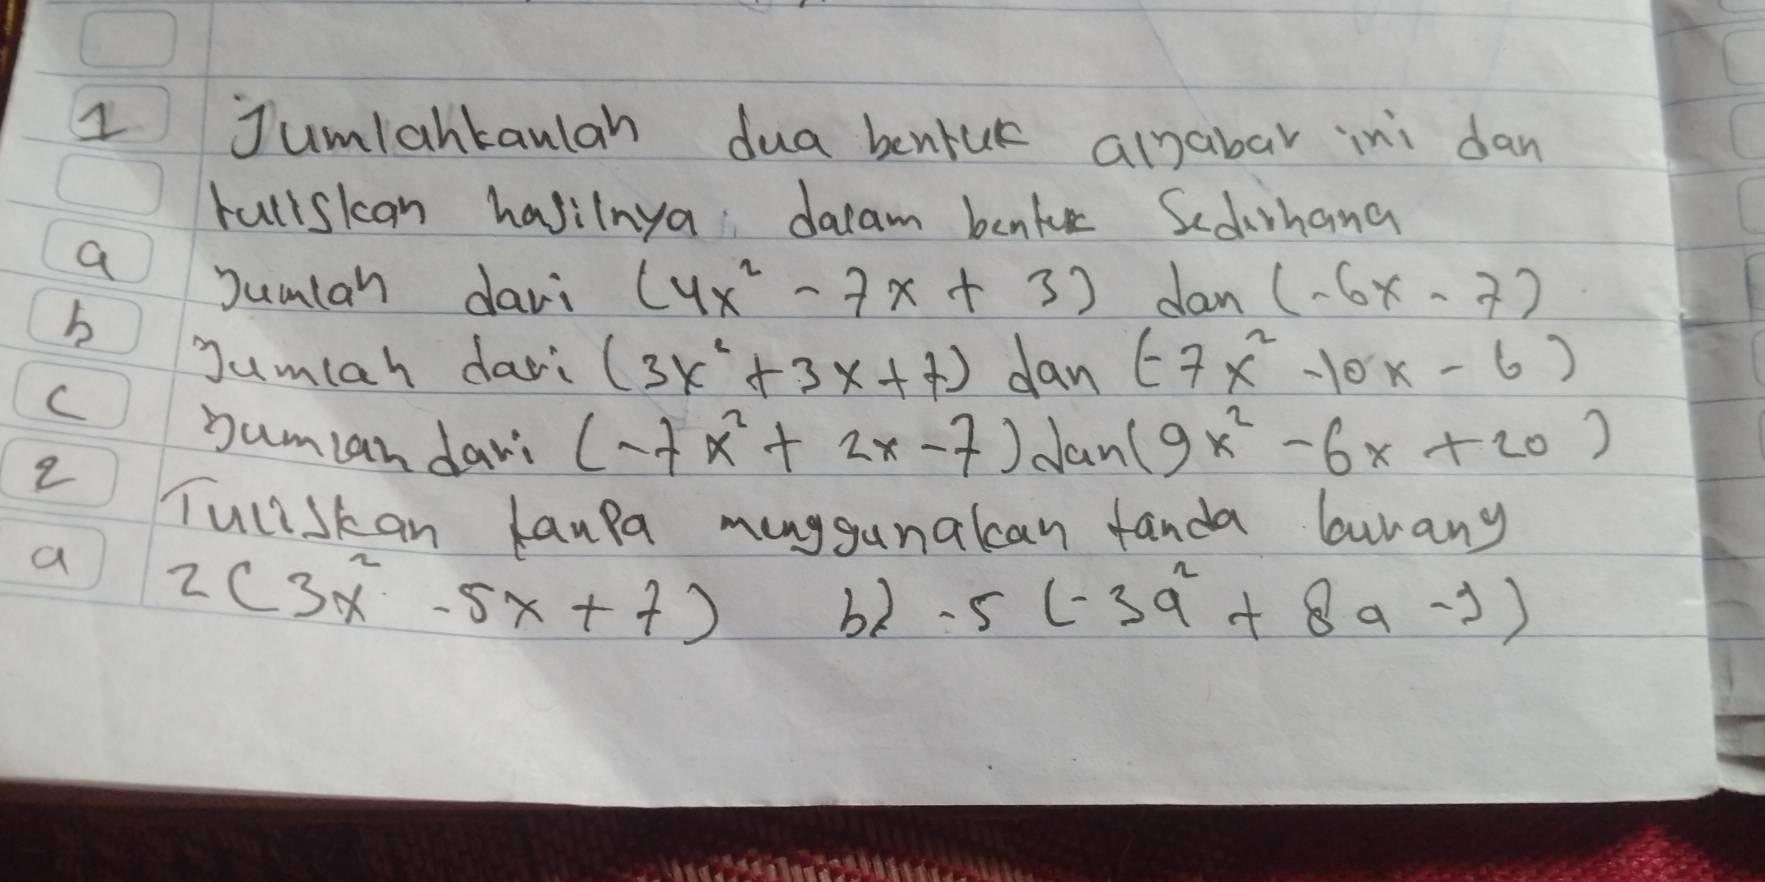 1 Jumlahkanlah dua bentuk aljabar ini dan
tuliskan hasilnya dalam bentuk Sederhana
a Jumlah dari (4x² - 7x + 3) dan (-6x - 7)
b Jumlah dari (3x² + 3x + 7) dan (-7x² - 10x - 6)
c Jumlah dari (-7x² + 2x - 7) dan (9x² - 6x + 20)
2 Tuliskan tanpa menggunakan tanda kurang
a 2(3x² - 5x + 7) b) -5 (-3a² + 8a - 9)